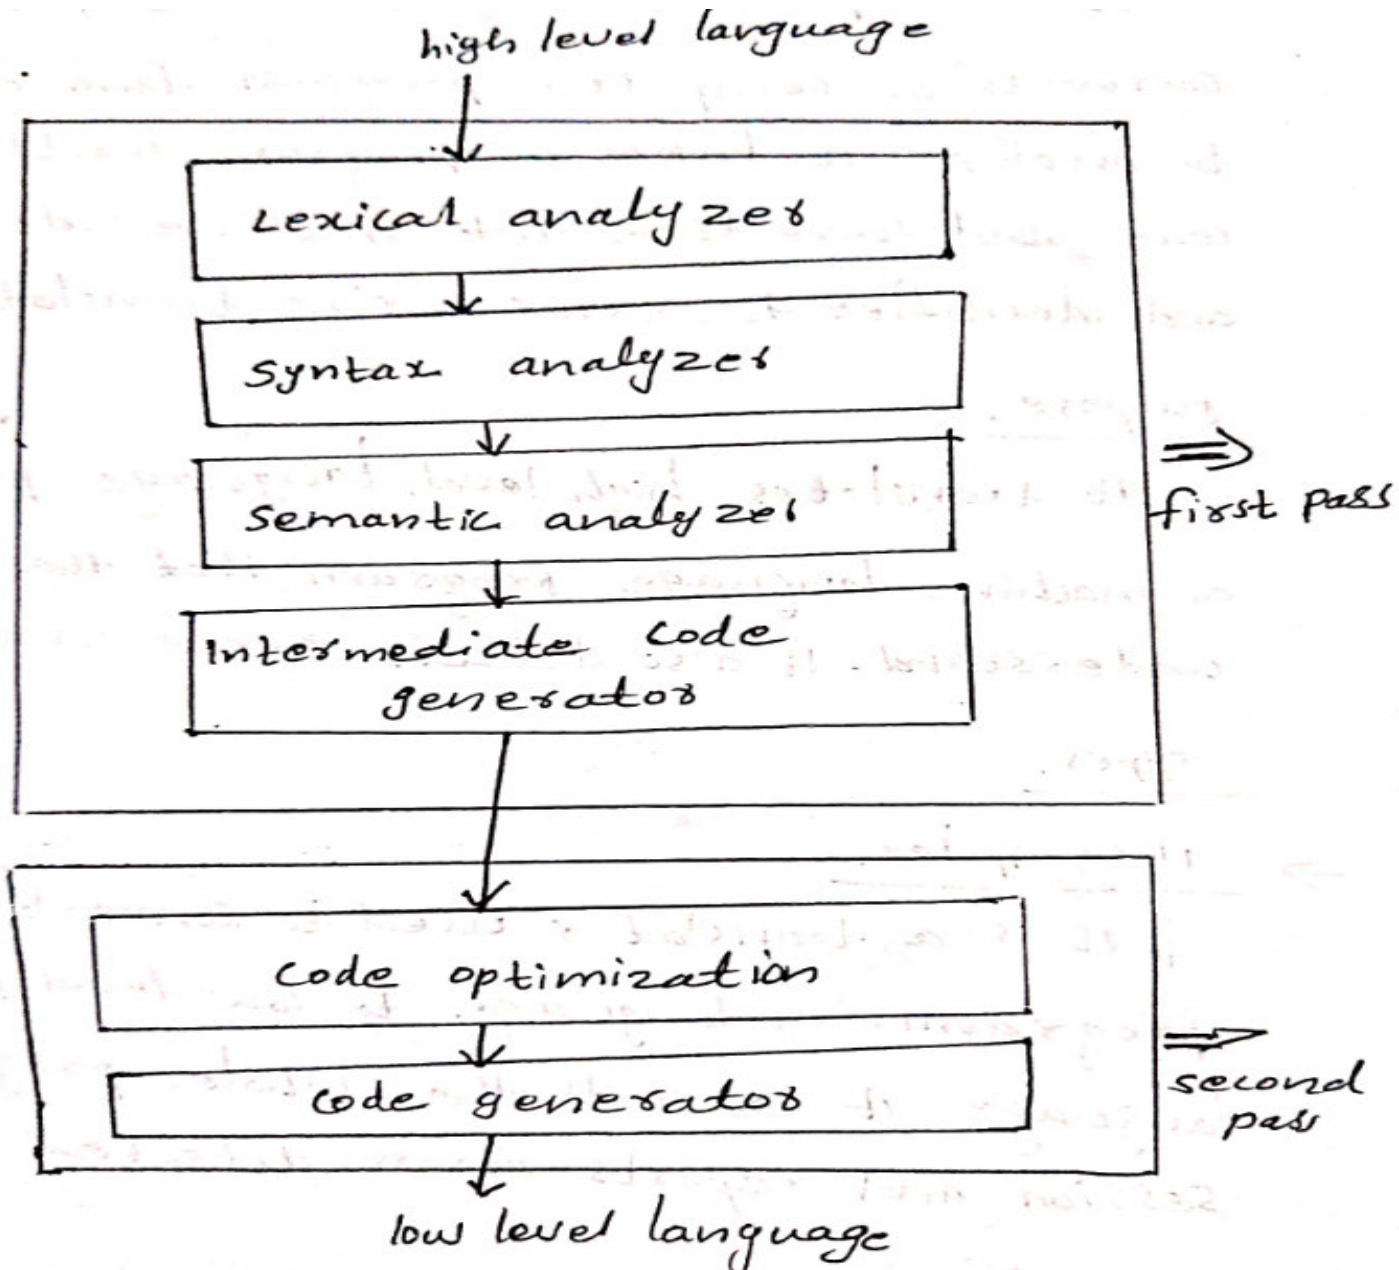 high level language
Lexical analyzer
Syntax analyzer
Semantic analyzer
first pass
Intermediate code
generator
Code optimization
code generator
second
pass
low level language